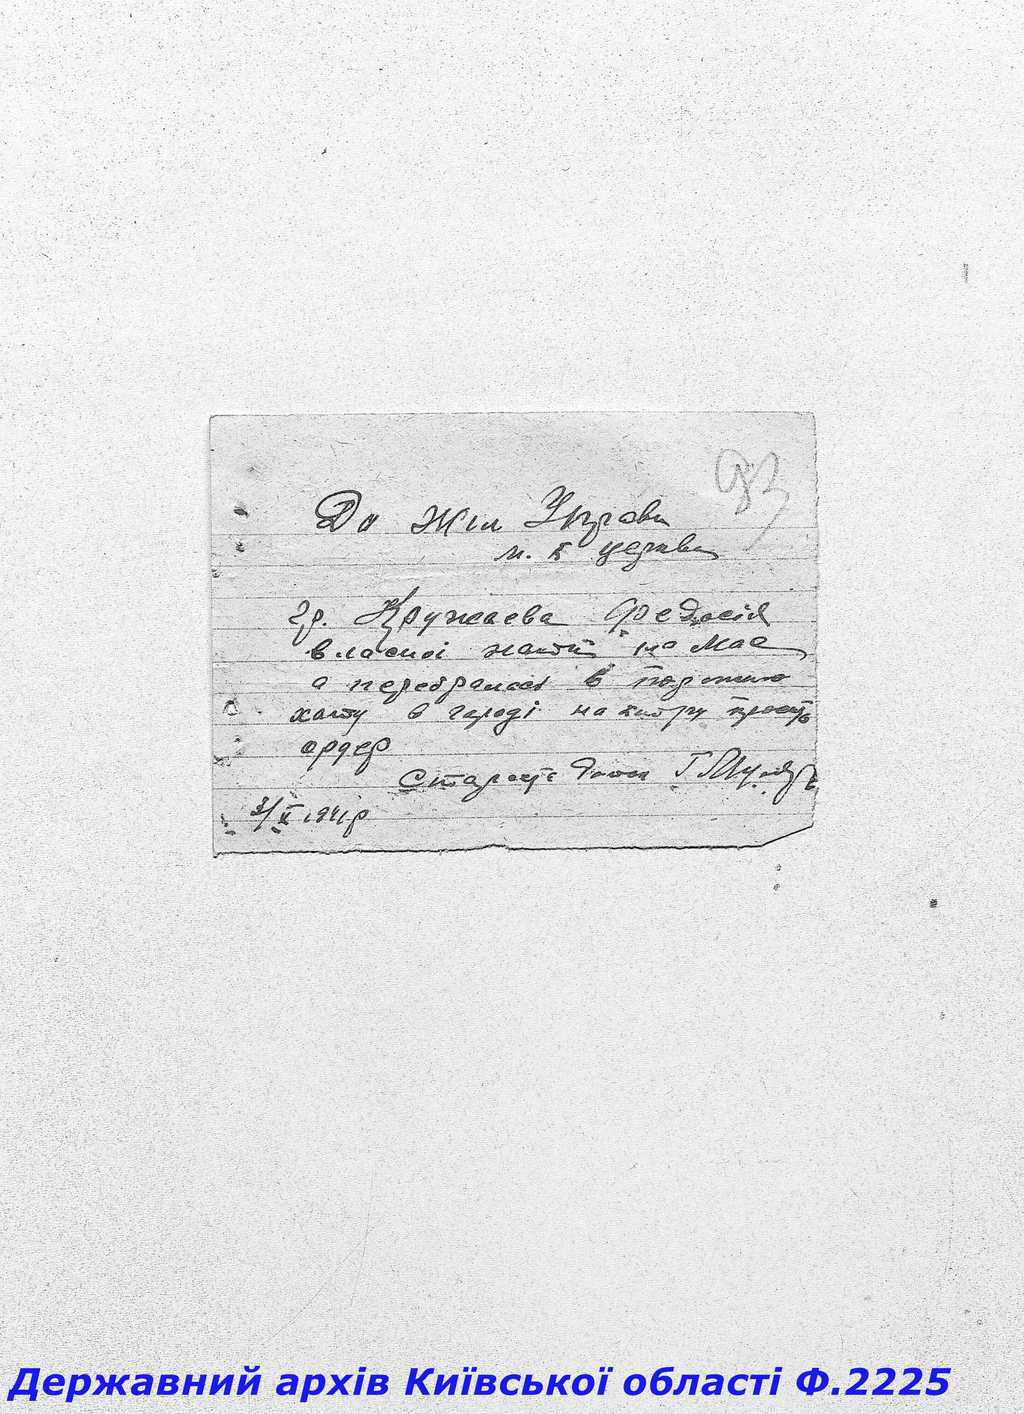 93
До Жил Управи
м. Б церкви
гр. Кружаева Федосія
власної хати не має
а перебралась в порожню
хату в городі на котру просить
ордер
Староста
3/X 1941р
Державний архів Київської області Ф.2225